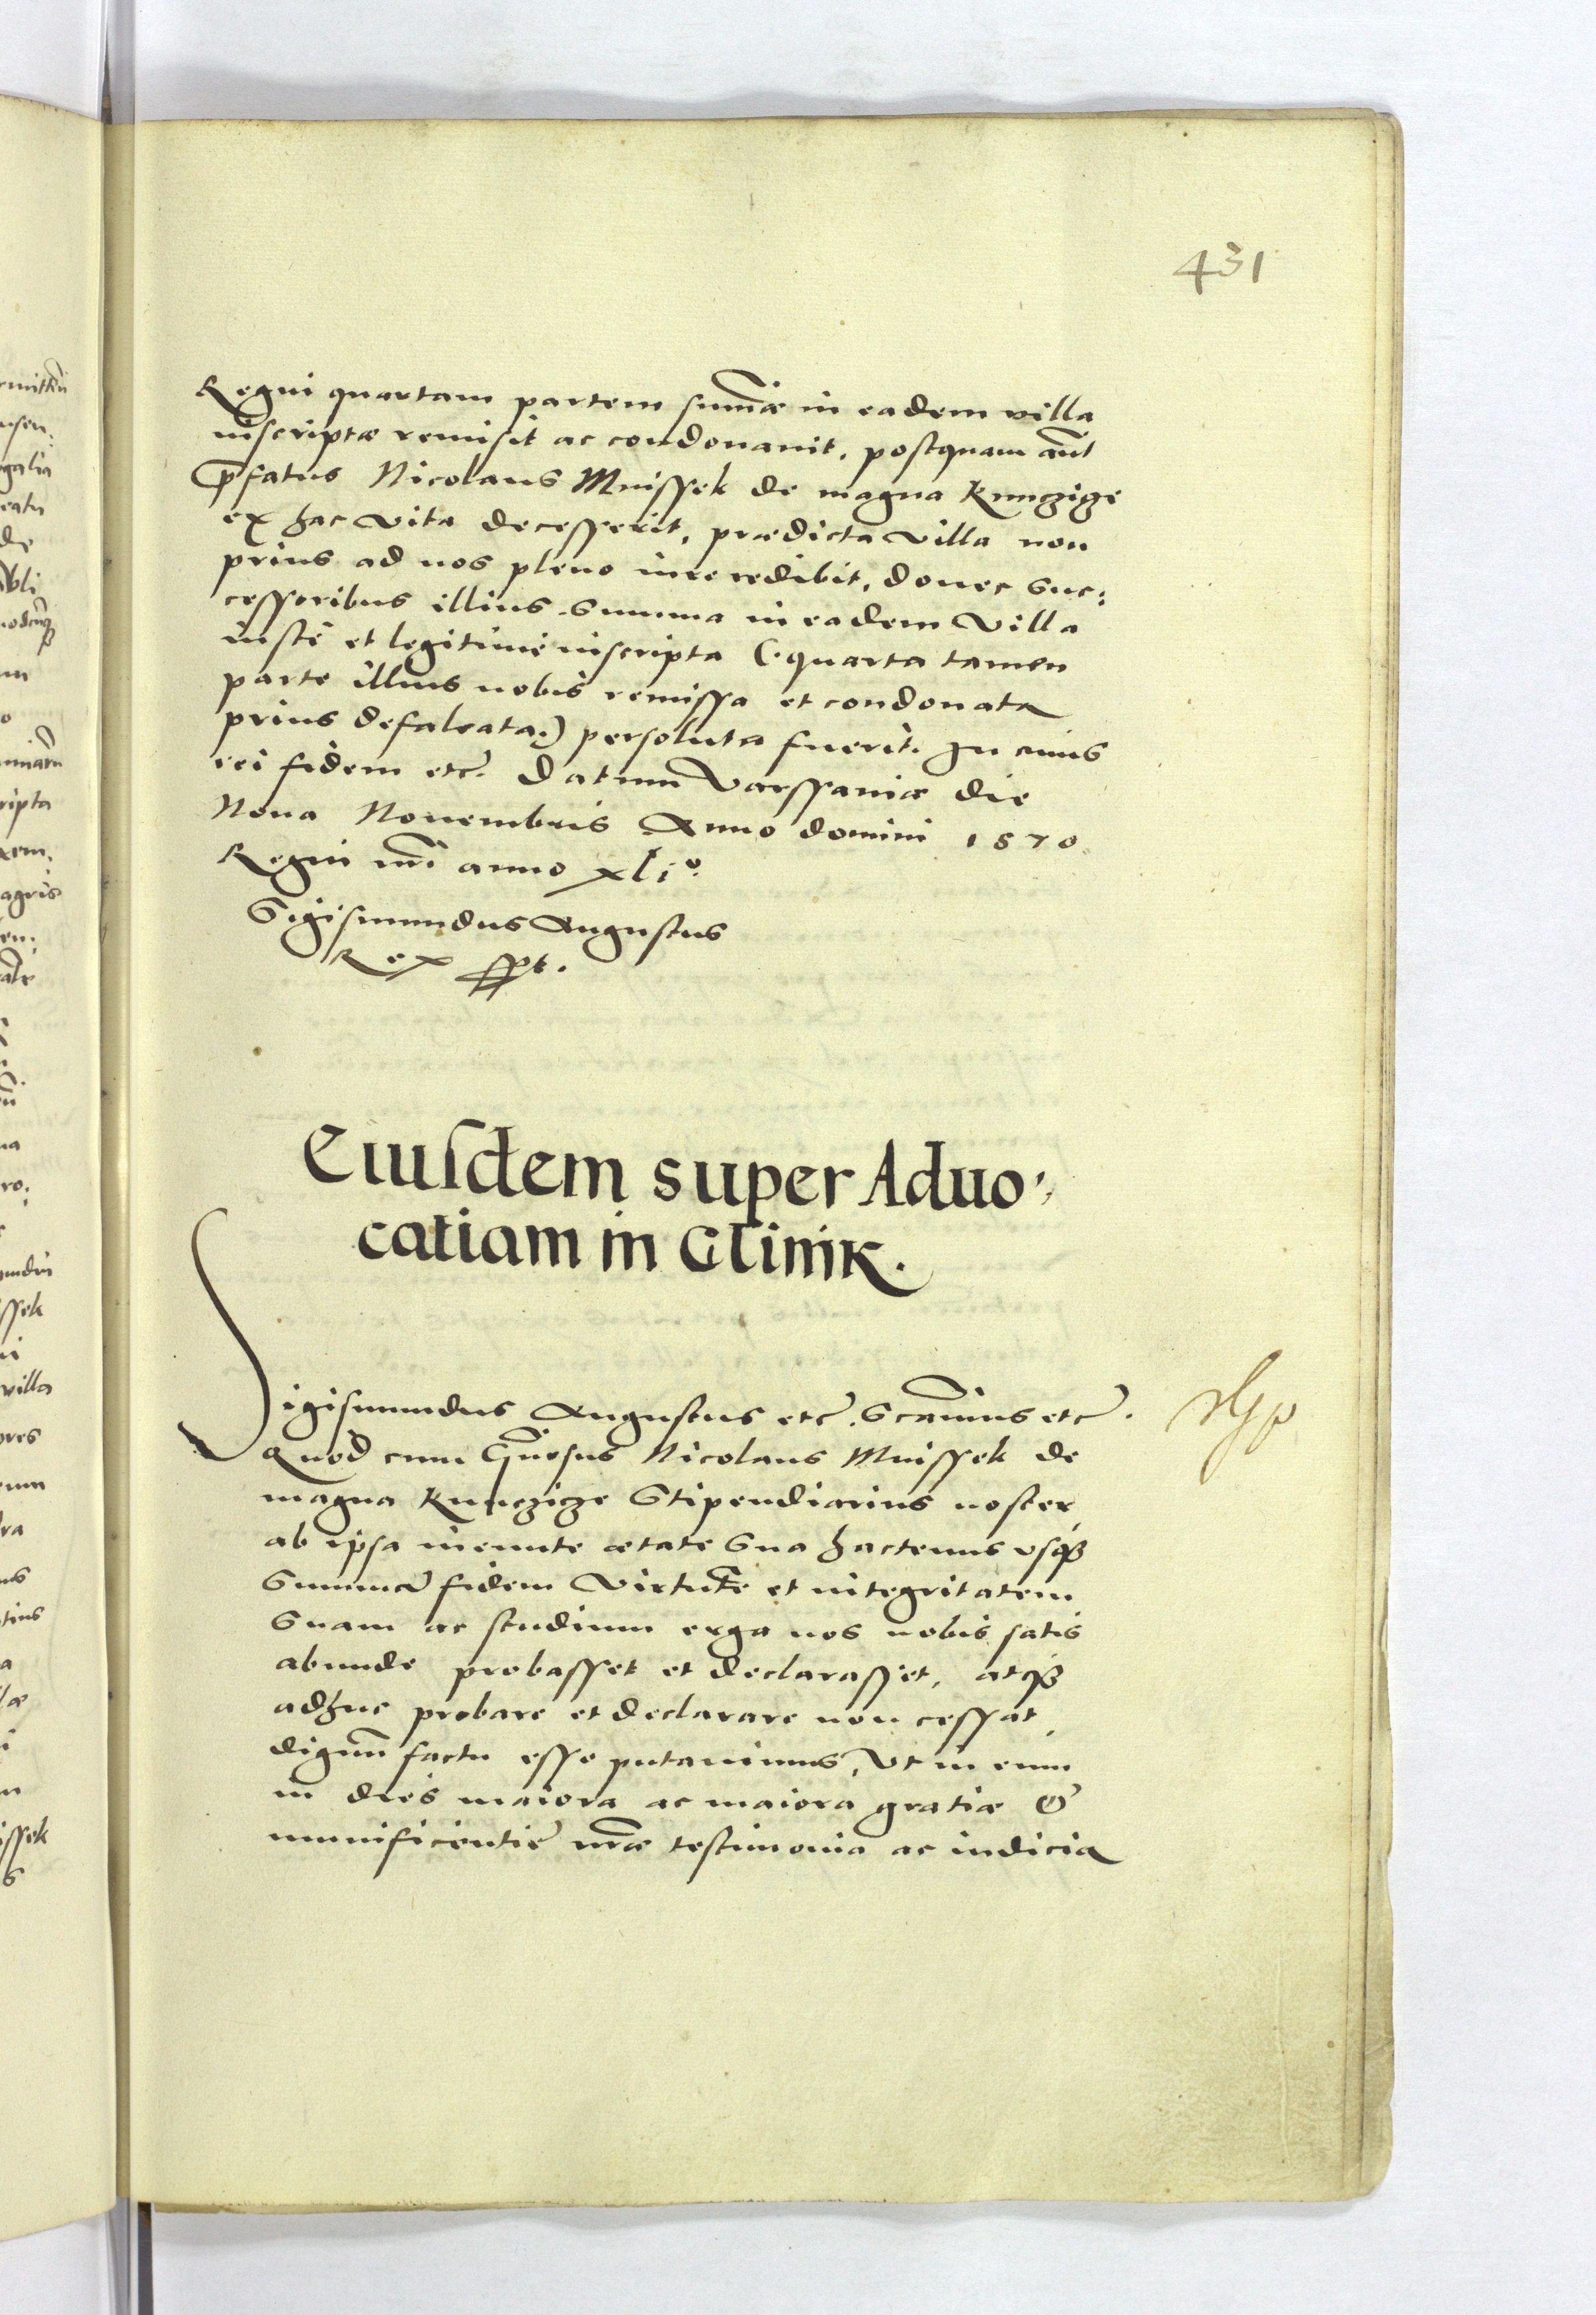 431
Regni quartam partem sum̃æ in eadem villa
inscriptæ remisit ac condonauit, postquam aũt
p̃fatus Nicolaus Mnissek de magna Kunczicze
ex hac vita decesserit, prædicta villa non
prius ad nos pleno iure redibit, donec suc:
cessoribus illius summa in eadem villa
iustè et legitimè inscripta (:quarta tamen
parte illius nobis remissa et condonata
prius defalcata:) persoluta fuerit. In cuius
rei fidem etc̃. Datum Varssauiæ die
Nona Nouembris Anno domini 1570
Regni nr̃i anno xli°.
Sigismundus Augustus
Rex sst.
Eiusdem super Aduo:
catiam in Clinik.
Sigismundus Augustus etc̃. S canimus etc̃.
Quod cum Gñosus Nicolaus Mnissek de
magna Kunczicze Stipendiarius noster
ab ipsa ineunte ætate sua hactenus vsq3
summã fidem virtutẽ et integritatem
suam ac studium erga nos nobis satis
abunde probasset et declarasset, atq3
adhuc probare et declarare non cessat,
dignũ factu esse putauimus, vt in eum
in dies maiora ac maiora gratiæ &
munificentiæ nr̃æ testimonia ac indicia